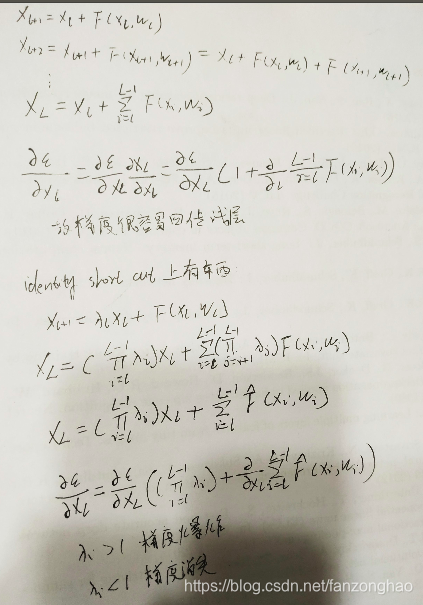 x_{l+1} = x_l + F(x_l, w_l)
x_{l+2} = x_{l+1} + F(x_{l+1}, w_{l+1}) = x_l + F(x_l, w_l) + F(x_{l+1}, w_{l+1})
⋮
x_L = x_l + \sum_{i=l}^{L-1} F(x_i, w_i)
\frac{∂ε}{∂x_l} = \frac{∂ε}{∂x_L} \frac{∂x_L}{∂x_l} = \frac{∂ε}{∂x_L} (1 + \frac{∂}{∂_l} \frac{L-1}{i=l} F(x_i, w_i))
梯度很容易回传浅层
identity short cut 上有东西
x_{l+1} = λ_l x_l + F(x_l, w_l)
x_L = (\prod_{i=l}^{L-1} λ_i) x_l + \sum_{i=l}^{L-1} (\prod_{j=i+1}^{L-1} λ_j) F(x_i, w_i)
x_L = (\prod_{i=l}^{L-1} λ_i) x_l + \sum_{i=l}^{L-1} \hat{F}(x_i, w_i)
\frac{∂ε}{∂x_l} = \frac{∂ε}{∂x_L} ((\prod_{i=l}^{L-1} λ_i) + \frac{∂}{∂x_l} \sum_{i=l}^{L-1} \hat{F}(x_i, w_i))
λ_i > 1 梯度爆炸
λ_i < 1 梯度消失
https://blog.csdn.net/fanzonghao